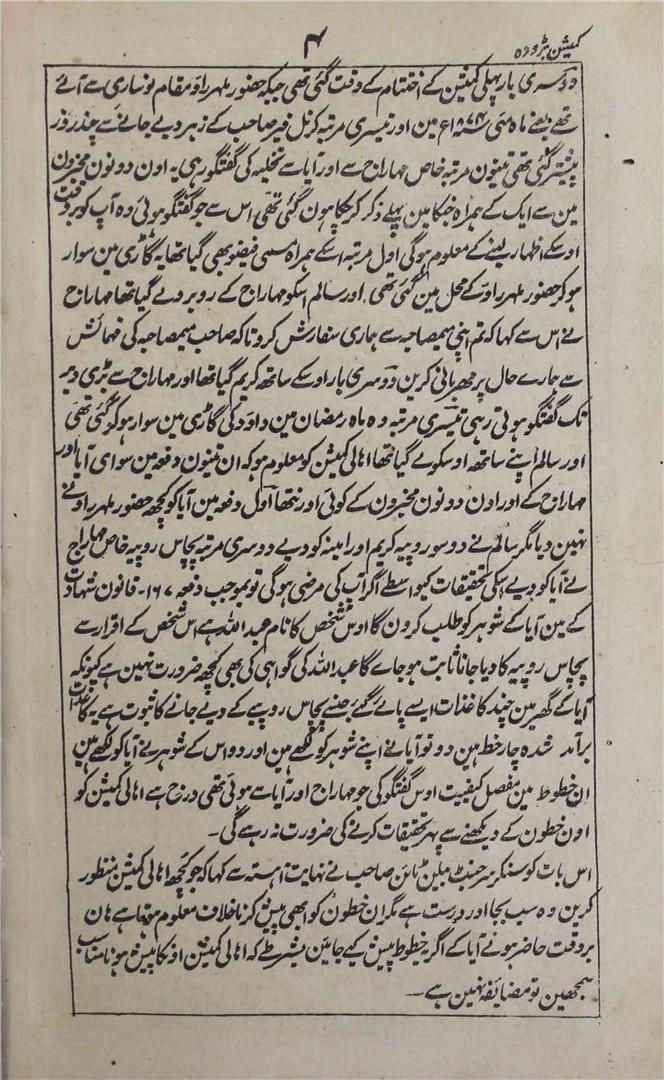 کمیشن بڑودہ
۴
دوسری بار پہلی کمیشن کے اختتام کے وقت گئی تھی جبکہ حضور ملہر راؤ مقام نوساری سے آئے
تھے یعنے ماہ مئی ۱۸۷۴ء مین اور تیسری مرتبہ کرنل فیر صاحب کے زہر دیے جانے سے چند روز
پیشتر گئی تھی تینون مرتبہ خاص مہاراج سے اور آیا سے تخلیہ کی گفتگو رہی یہ اون دونون مخبرون
مین سے ایک کے ہمراہ جنکا مین پہلے ذکر کر چکا ہون گئی تھی اس سے جو گفتگو ہوئی وہ آپ کو بروقت
اوسکے اظہار لینے کے معلوم ہوگی اول مرتبہ اسکے ہمراہ مسمی فیضو بھی گیا تھا یہ گاڑی مین سوار
ہو کر حضور ملہر راؤ کے محل مین گئی تھی اور سالم اسکو مہاراج کے روبرو لے گیا تھا مہاراج
نے اس سے کہا کہ تم اپنی میمصاحبہ سے ہماری سفارش کرو تاکہ صاحب میمصاحبہ کی فہمائش
سے ہمارے حال پر مہربانی کرین دوسری بار اوسکے ساتھ کریم گیا تھا اور مہاراج سے بڑی دیر
تک گفتگو ہوتی رہی تیسری مرتبہ وہ ماہ رمضان مین داؤد کی گاڑی مین سوار ہو کر گئی تھی
اور سالم اپنے ساتھ اوسکو لے گیا تھا اہالی کمیشن کو معلوم ہو کہ ان تینون دفعہ مین سوای آیا اور
مہاراج کے اور اون دونون مخبرون کے کوئی اور نتھا اول دفعہ مین آیا کو کچھ حضور ملہر راؤ نے
نہین دیا مگر سالم نے دو سو روپیہ کریم اور امینہ کو دیے دوسری مرتبہ پچاس روپیہ خاص مہاراج
نے آیا کو دیے اسکی تحقیقات کیواسطے اگر آپ کی مرضی ہوگی تو بموجب دفعہ ۱۶۷۔ قانون شہادت
کے مین آیا کے شوہر کو طلب کرون گا اوس شخص کا نام عبداللہ ہے اس شخص کے اقرار سے
پچاس روپیہ کا دیا جانا ثابت ہو جاے گا عبداللہ کی گواہی کی بھی کچھ ضرورت نہین ہے کیونکہ
آیا کے گھر مین چند کاغذات ایسے پائے گئے جنسے پچاس روپیے کے دیے جانے کا ثبوت ہے یہ کاغذات
برآمد شدہ چار خط ہین دو تو آیا نے اپنے شوہر کو لکھے ہین اور دو اس کے شوہر نے آیا کو لکھے ہین
ان خطوط مین مفصل کیفیت اوس گفتگو کی جو مہاراج اور آیا سے ہوئی تھی درج ہے اہالی کمیشن کو
اون خطون کے دیکھنے سے پھر تحقیقات کرنے کی ضرورت نہ رہے گی۔
اس بات کو سنکر سرجنٹ بیلن ٹائن صاحب نے نہایت آہستہ سے کہا کہ جو کچھ اہالی کمیشن منظور
کرین وہ سب بجا اور درست ہے مگر ان خطون کو ابھی پیش کرنا خلاف معلوم ہوتا ہے ہان
بروقت حاضر ہونے آیا کے اگر یہ خطوط پیش کیے جائین بشرطیکہ اہالی کمیشن اونکا پیش ہونا مناسب
سمجھین تو مضائقہ نہین ہے۔